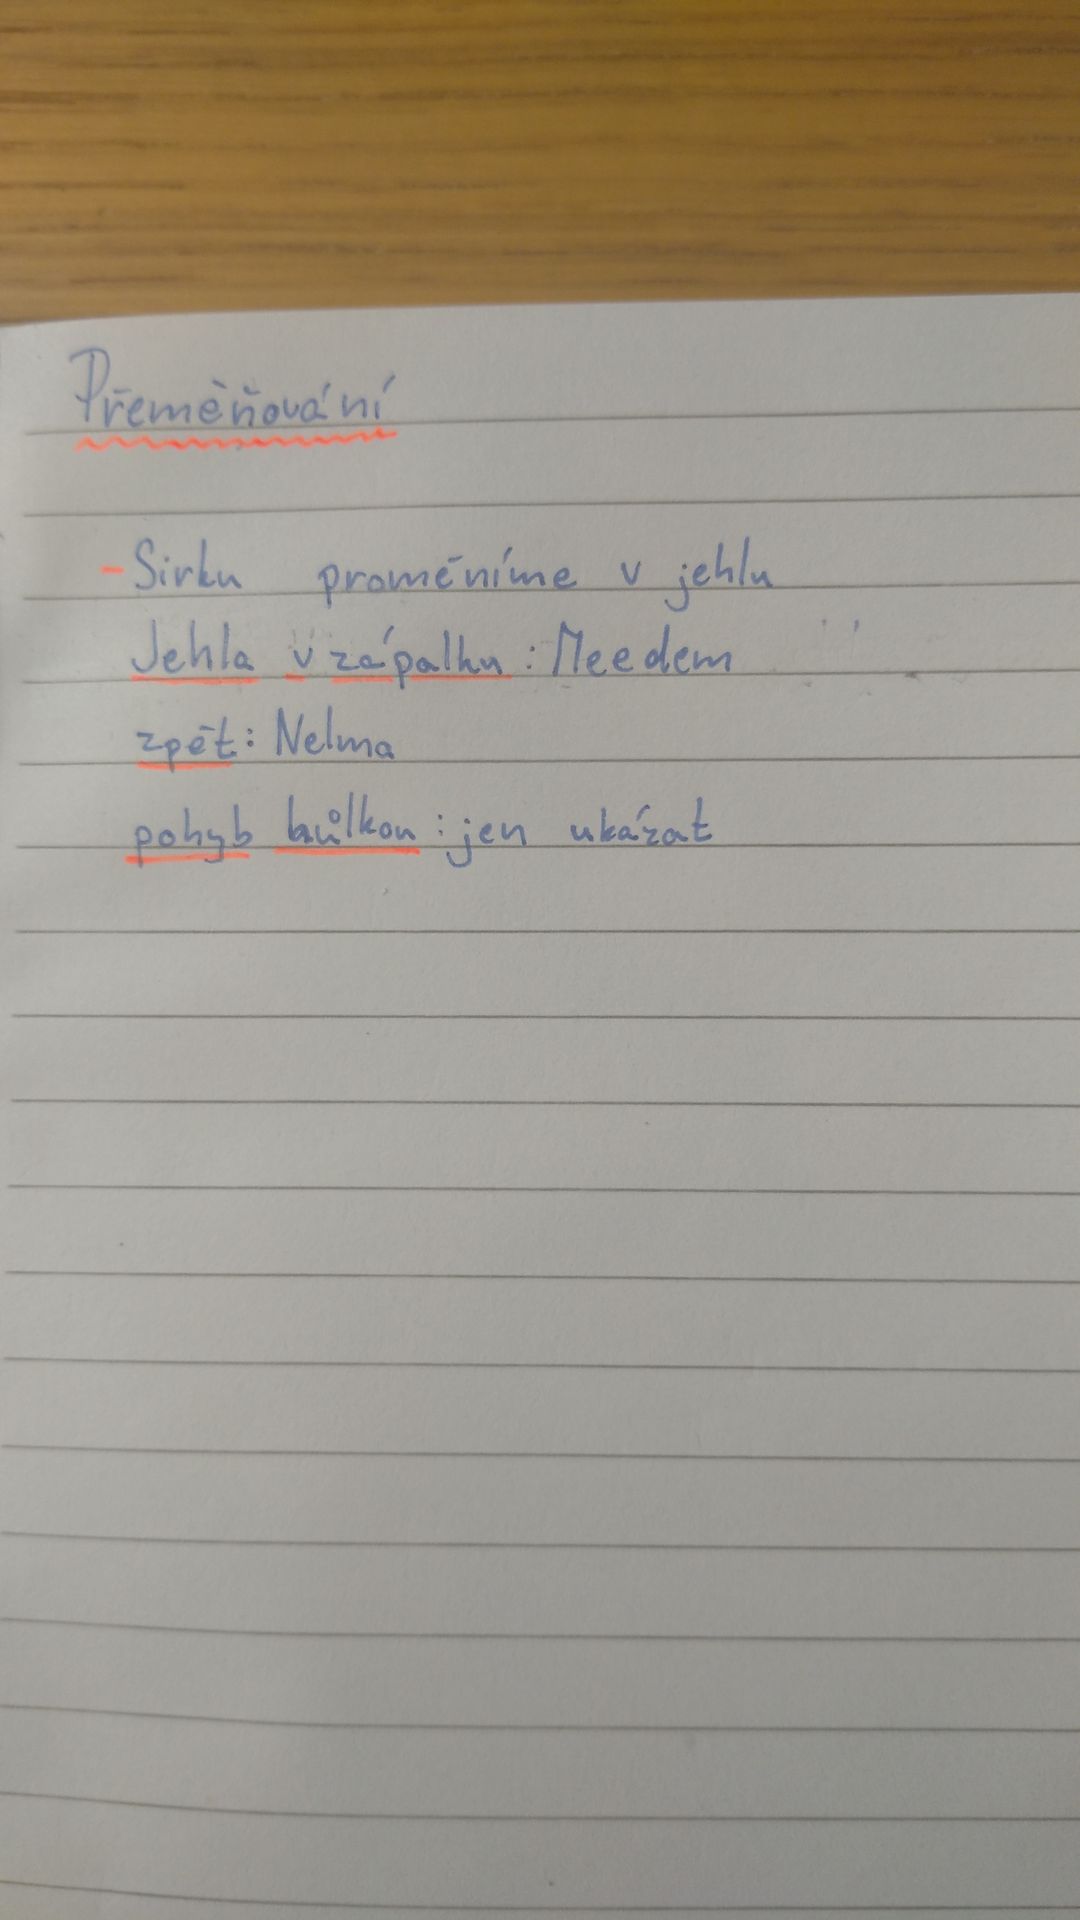 Přeměňování
- Sirku proměníme v jehlu
Jehla v zápalku : Meedem
zpět: Nelma
pohyb hůlkou : jen ukázat